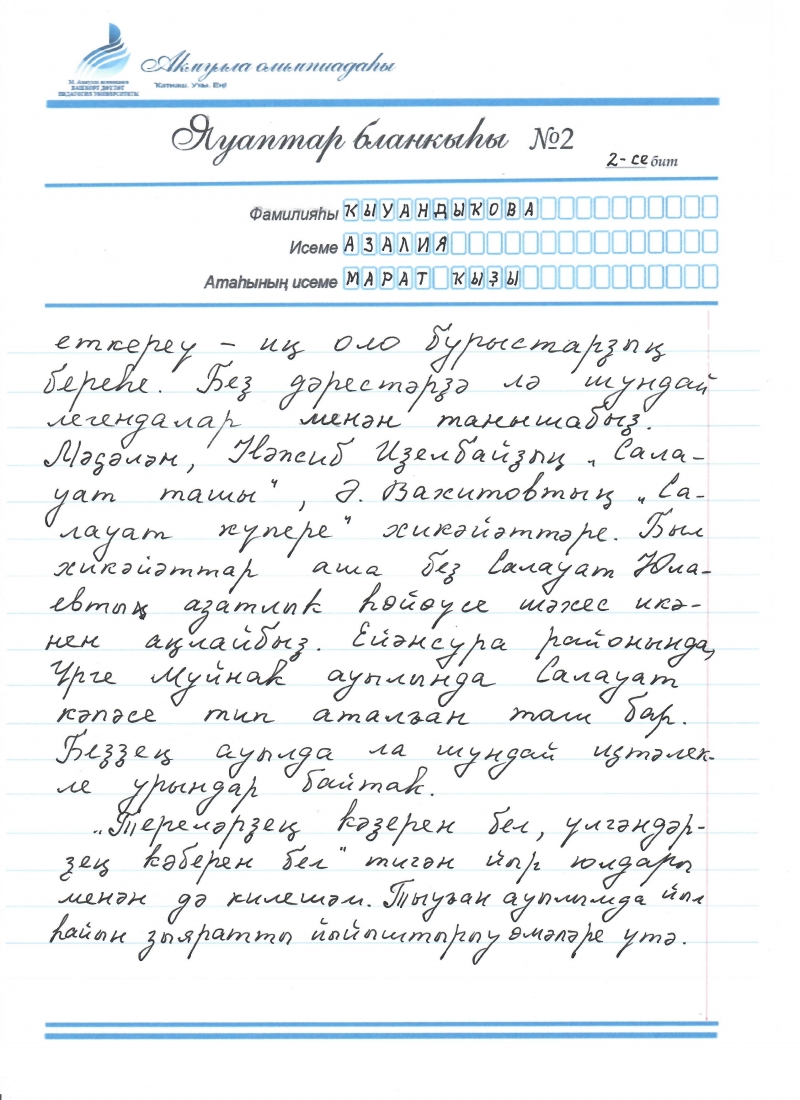 Акмулла олимпиадаһы
М. Аҡмулла исемендәге
БАШҠОРТ ДӘҮЛӘТ
ПЕДАГОГИЯ УНИВЕРСИТЕТЫ
Ҡатнаш. Уҙы. Ең!
Яуаптар бланкыһы №2
2-се бит
Фамилияһы ҠЫУАНДЫҠОВА
Исеме АЗАЛИЯ
Атаһының исеме МАРАТ ҠЫҘЫ
еткереү – иң оло бурыстарҙың
береһе. Беҙ дәрестәрҙә лә шундай
легендалар менән танышабыҙ.
Мәҫәлән, Нәжиб Иҙелбайҙың „Сала-
уат ташы", Ә. Вахитовтың „Са-
лауат күпере" хикәйәттәре. Был
хикәйәттәр аша беҙ Салауат Юла-
евтың азатлыҡ һөйөүсе шәхес икә-
нен аңлайбыҙ. Ейәнсура районында,
Үрге Муйнаҡ ауылында Салауат
кәпәсе тип аталған таш бар.
Беҙҙең ауылда ла шундай иҫтәлек-
ле урындар байтаҡ.
„Тереләрҙең ҡәҙерен бел, үлгәндәр-
ҙең ҡәберен бел" тигән йыр юлдары
менән дә килешәм. Тыуған ауылымда йыл
һайын зыяратты йыйыштырыу өмәләре үтә.